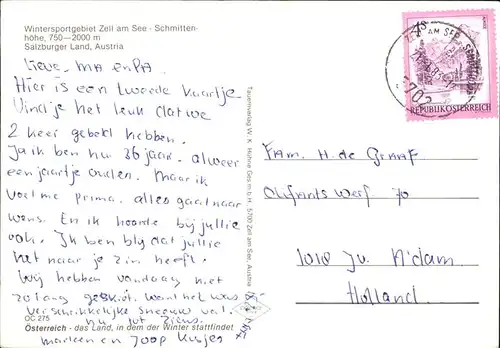 Wintersportgebiet Zell am See - Schmitten-
höhe, 750—2000 m
Salzburger Land, Austria
Lieve MA en PA.
Hier is een tweede kaartje.
Vind je het leuk dat we
2 keer gebeld hebben.
Ja ik ben nu 36 jaar. alweer
een jaartje ouder. Maar ik
voel me prima. alles gaat naar
wens. En ik hoorde bij jullie
ook. Ik ben blij dat jullie
het naar je zin heeft.
Wij hebben vandaag niet
zo lang geskiet. want het was
verschrikkelijke sneeuw val.
nu tot ziens.
Marleen en Joop kusjes
OC 275
Österreich - das Land, in dem der Winter stattfindet
Tauernverlag W. K. Hühne Ges.m.b.H., 5700 Zell am See, Austria
AM SEE
REPUBLIK ÖSTERREICH
Fam. H. de Graaf
Olifants werf 70
1018 A'dam
Holland.